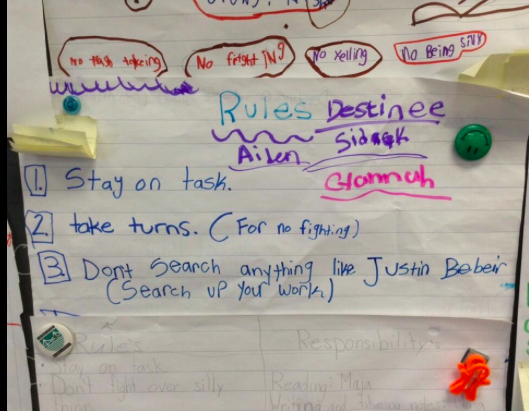 No trash talking
No fightiNg
No Yelling
No Being Silly
Rules Destinee
Aiden
1. Stay on task.
2. take turns. (For no fighting)
3. Dont Search anything like Justin Bebeir
(Search up your work)
Rules Responsibility
Stay on task
Dont fight over silly
things Reading: Maja
Writing and